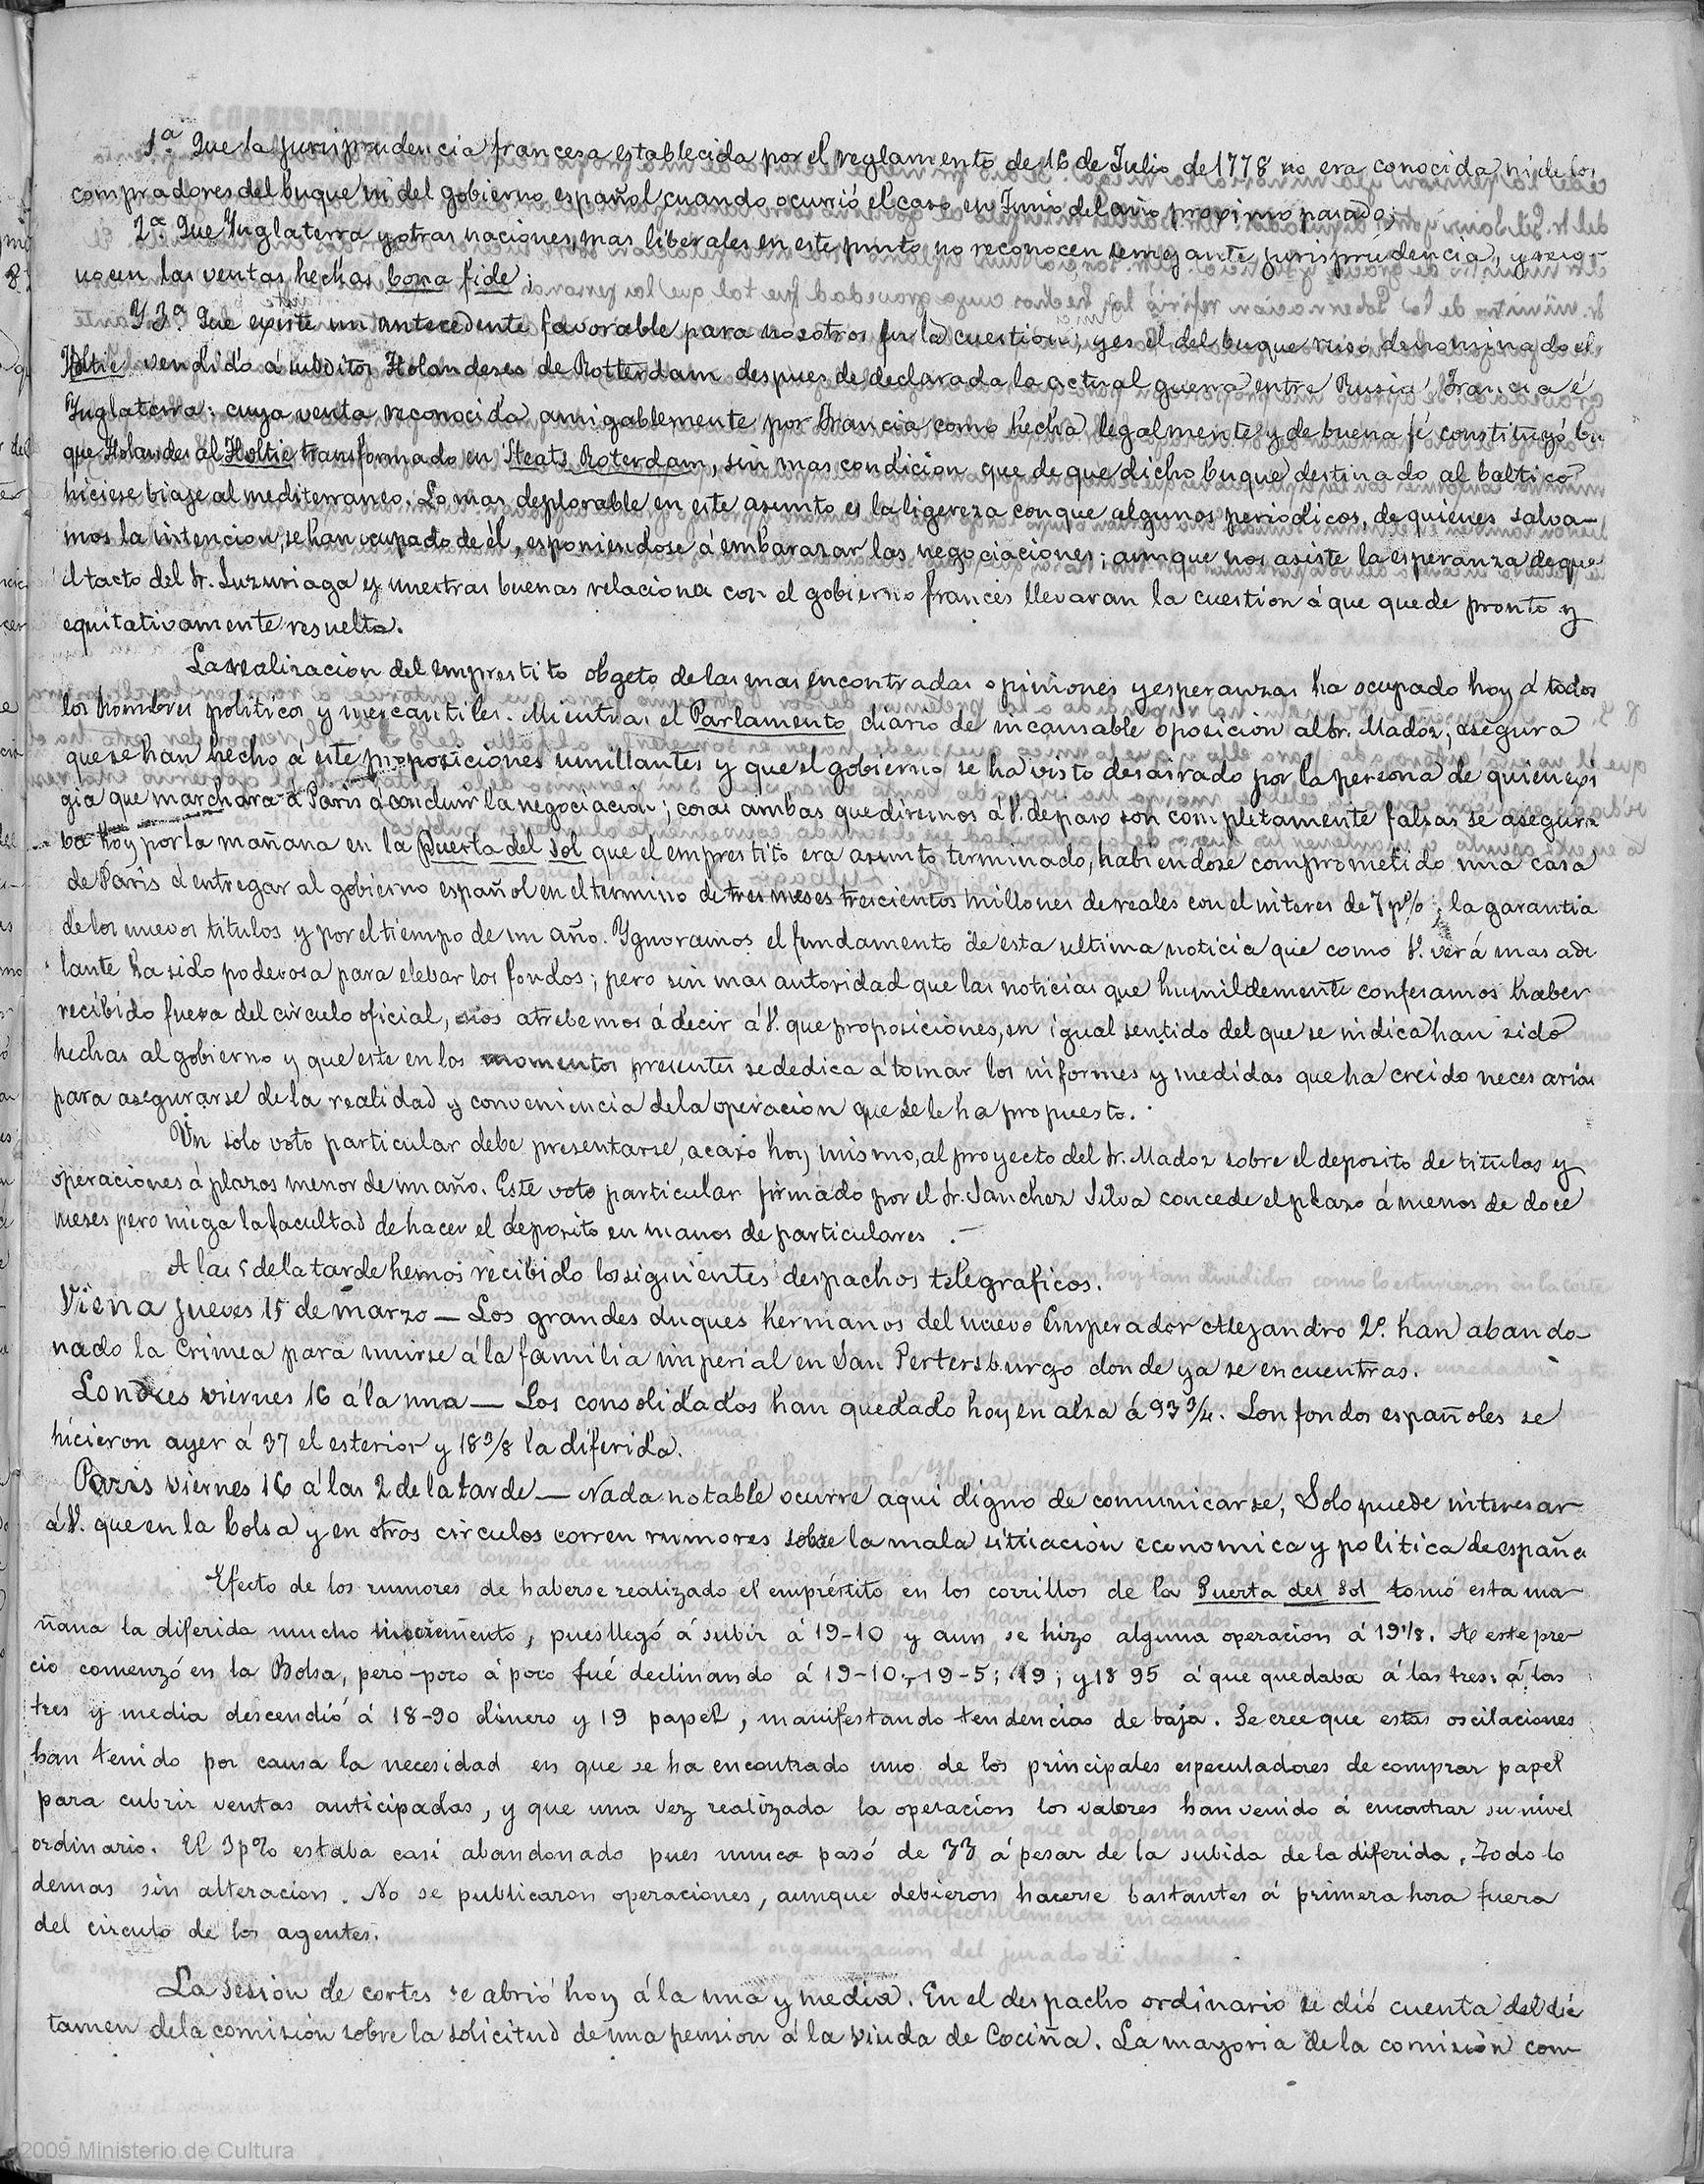 1ª Que la jurisprudencia francesa establecida por el reglamento de 16 de Julio de 1778 no era conocida ni de los
compradores del buque ni del gobierno español cuando ocurrió el caso en Junio del año proximo pasado;
2ª Que Ynglaterra y otras naciones, mas liberales en este punto no reconocen semejante jurisprudencia, y reco-
nocen las ventas hechas bona fide;
Y 3ª. Que existe un antecedente favorable para nosotros en la cuestion, y es el del buque ruso denominado el
Holtie vendido á subditos Holandeses de Rotterdam despues de declarada la actual guerra entre Rusia Francia é
Ynglaterra: cuya venta reconocida amigablemente por Francia como hecha legalmente y de buena fé constituyó bu
que Holandes al Holtie transformado en Steats Roterdam, sin mas condicion que de que dicho buque destinado al baltico
hiciese biaje al mediterraneo. Lo mas deplorable en este asunto es la ligereza con que algunos periodicos, de quienes salva-
mos la intencion, se han ocupado de él, esponiendose á embarazar las negociaciones; aunque nos asiste la esperanza de que
el tacto del Sr. Luzuriaga y nuestras buenas relaciones con el gobierno francés llevaran la cuestion á que quede pronto y
equitativamente resuelta.
La realizacion del emprestito obgeto de las mas encontradas opiniones y esperanzas ha ocupado hoy á todos
los hombres politicos y mercantiles. Mientras el Parlamento diario de incansable oposicion al Sr. Madoz, asegura
que se han hecho á este proposiciones umillantes y que el gobierno se ha visto desairado por la persona de quien exi
gia que marchara á Paris á concluir la negociacion; cosas ambas que diremos á V. de paso son completamente falsas se asegura
ba hoy por la mañana en la Puerta del Sol que el emprestito era asunto terminado, habiendose comprometido una casa
de Paris á entregar al gobierno español en el termino de tres meses trescientos millones de reales con el interes de 7 p%, la garantia
de los nuevos titulos y por el tiempo de un año. Ygnoramos el fundamento de esta ultima noticia que como V. verá mas ade
lante ha sido poderosa para elebar los fondos; pero sin mas autoridad que las noticias que humildemente confesamos haber
recibido fuera del circulo oficial, nos atrebemos á decir á V. que proposiciones, en igual sentido del que se indica han sido
hechas al gobierno y que este en los momentos presentes se dedica á tomar los informes y medidas que ha creido necesarias
para asegurarse de la realidad y conveniencia de la operacion que se le ha propuesto.
Un solo voto particular debe presentarse, acaso hoy mismo, al proyecto del Sr. Madoz sobre el deposito de titulos y
operaciones á plazos menor de un año. Este voto particular firmado por el Sr. Sanchez Silva concede el plazo á menos de doce
meses pero niega la facultad de hacer el deposito en manos de particulares.—
A las 5 de la tarde hemos recibido los siguientes despachos telegraficos.
Viena Jueves 15 de marzo — Los grandes duques hermanos del nuevo Emperador Alejandro 2º. han abando-
nado la Crimea para unirse á la familia imperial en San Pertersburgo donde ya se encuentras.
Londres viernes 16 á la una — Los consolidados han quedado hoy en alza á 93 3/4. Lon fondos españoles se
hicieron ayer á 37 el esterior y 18 3/8 la diferida.
Paris viernes 16 á las 2 de la tarde — Nada notable ocurre aqui digno de comunicarse, Solo puede interesar
á V. que en la bolsa y en otros circulos corren rumores sobre la mala situacion economica y politica de españa
Efecto de los rumores de haberse realizado el empréstito en los corrillos de la Puerta del Sol tomó esta ma-
ñana la diferida mucho incremento, pues llegó á subir á 19-10 y aun se hizo alguna operacion á 19 1/8. A este pre-
cio comenzó en la Bolsa, pero poco á poco fué declinando á 19-10; 19-5; 19; y 18 95 á que quedaba á las tres: á las
tres y media descendió á 18-90 dinero y 19 papel, manifestando tendencias de baja. Se cree que estas oscilaciones
han tenido por causa la necesidad en que se ha encontrado uno de los principales especuladores de comprar papel
para cubrir ventas anticipadas, y que una vez realizada la operacion los valores han venido á encontrar su nivel
ordinario. El 3 p% estaba casi abandonado pues nunca pasó de 33 á pesar de la subida de la diferida. Todo lo
demas sin alteracion. No se publicaron operaciones, aunque debieron hacerse bastantes á primera hora fuera
del circulo de los agentes.
La sesion de cortes se abrió hoy á la una y media. En el despacho ordinario se dió cuenta del dic
tamen de la comision sobre la solicitud de una pension á la viuda de Cociña. La mayoria de la comision com-
2009 Ministerio de Cultura